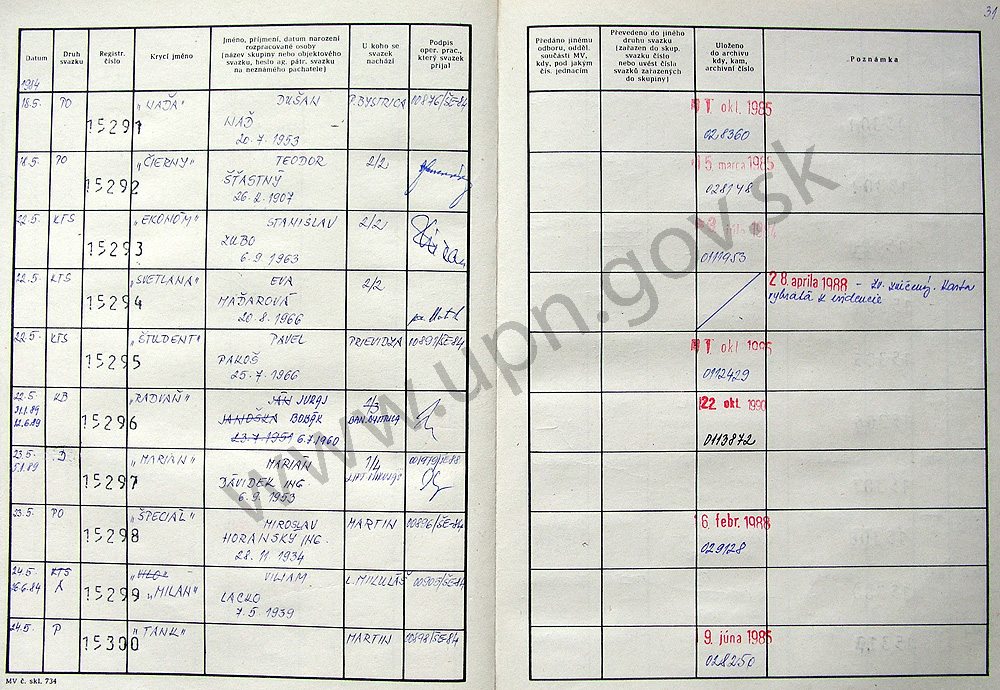 31
Datum
Druh svazku
Registr. číslo
Krycí jméno
Jméno, příjmení, datum narození
rozpracované osoby
(název skupiny nebo objektového
svazku, heslo ag. pátr. svazku
na neznámého pachatele)
U koho se
svazek
nachází
Podpis
oper. prac.,
který svazek
přijal
Předáno jinému
odboru, odděl.
součásti MV,
kdy, pod jakým
čís. jednacím
Převedeno do jiného
druhu svazku
(zařazen do skup.
svazku číslo
nebo uvést čísla
svazků zařazených
do skupiny)
Uloženo
do archivu
kdy, kam,
archivní číslo
Poznámka
1984
18.5. PO 15291 "NAĎA" DUŠAN P. BYSTRICA 00876/ŠE-84
NAĎ
20.7.1953
1. okt. 1985
028360
18.5. PO 15292 "ČIERNY" TEODOR 2/2
ŠŤASTNÝ
26.2.1907
5. marca 1985
028148
22.5. KTS 15293 "EKONÓM" STANISLAV 2/2
ZUBO
6.9.1963
0111953
22.5. KTS 15294 "SVETLANA" EVA 2/2
MAĎAROVÁ
20.8.1966
28. apríla 1988 - zv. zničený. Karta
vybratá z evidencie
22.5. KTS 15295 "ŠTUDENT" PAVEL PRIEVIDZA 00891/ŠE-84
PAKOŠ
25.7.1966
1. okt. 1985
0112429
22.5. KB 15296 "RADVAŇ" JÁN JURAJ 1/3
JANOŠKA BOBÁK
23.7.1951 6.7.1960
22. okt. 1990
0113872
23.5. D 15297 "MARIÁN" MARIAN 1/4
DÁVIDEK ING.
6.9.1953
23.5. PO 15298 "ŠPECIÁL" MIROSLAV MARTIN 00896/ŠE-84
HORANSKÝ ING.
28.11.1934
16. febr. 1988
029128
24.5. KTS 15299 "MILAN" VILIAM L. MIKULÁŠ 00905/ŠE-84
26.6.84 A
LACKO
7.5.1939
24.5. P 15300 "TANK" MARTIN 00898/ŠE-84
19. júna 1985
028250
MV č. skl. 734
www.upn.gov.sk